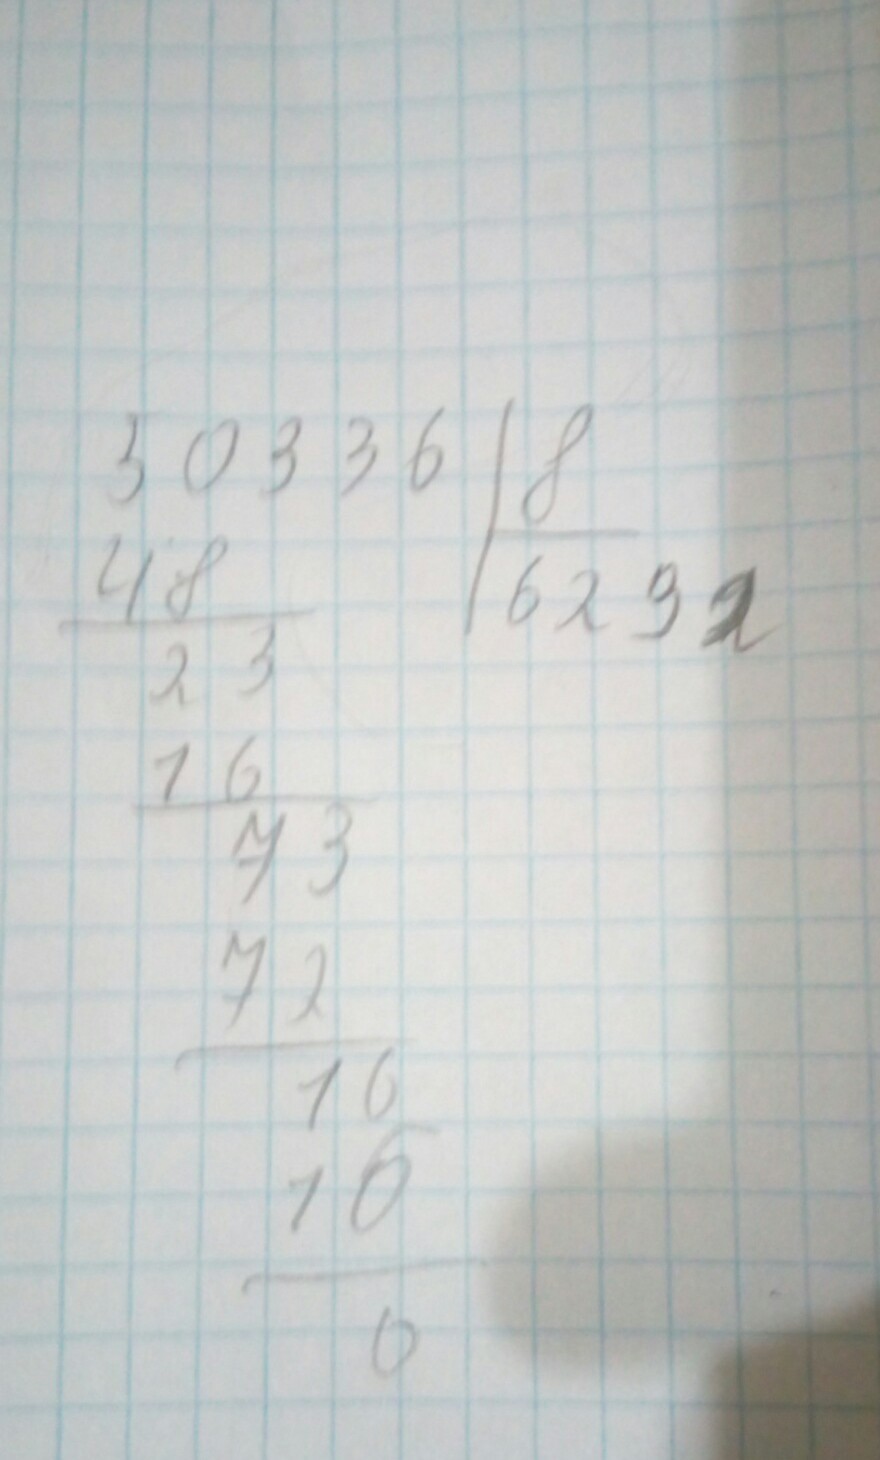 50336 8
48 6292
23
16
73
72
16
16
0